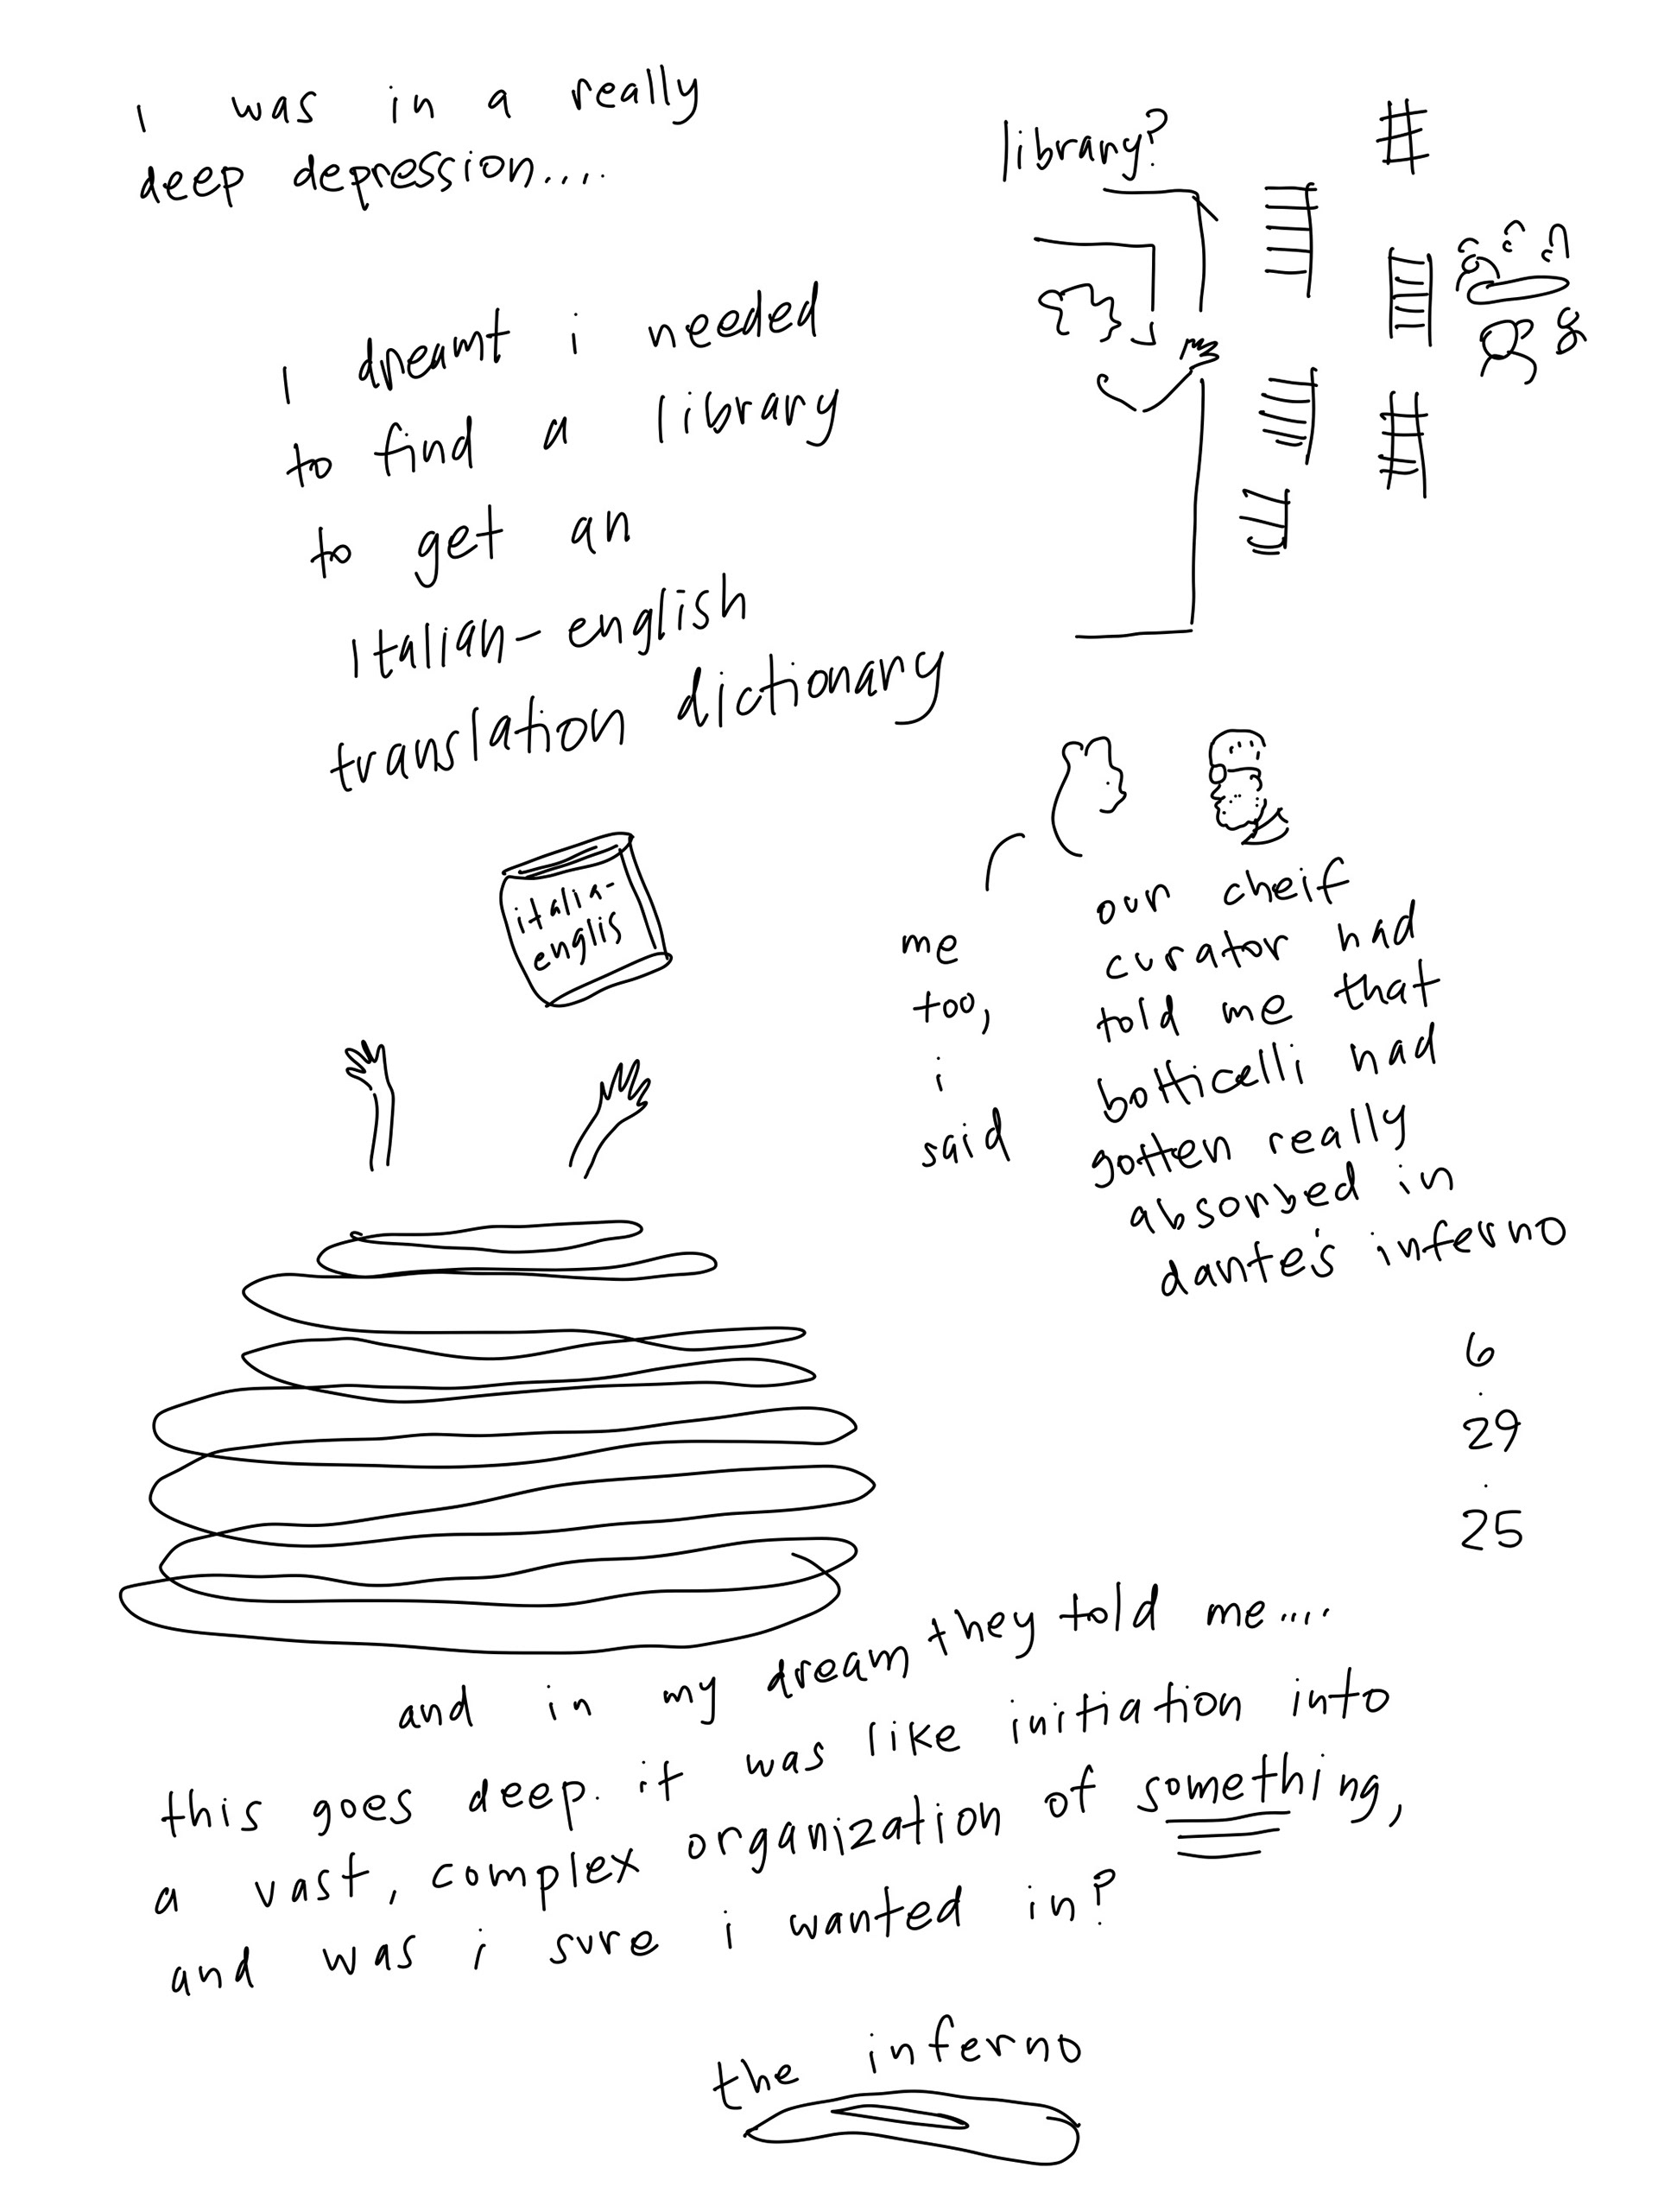 i was in a really
deep depression....
library?
i dreamt i needed
to find a library
to get an
italian-english
translation dictionary
italia-
englis
me
too,
i
said
our cheif
curator had
told me that
botticelli had
gotten really
absorbed in
dante's inferno
6
.
29
.
25
and in my dream they told me....
this goes deep. it was like initiation into
a vast, complex organization of something,
and was i sure i wanted in?
the inferno